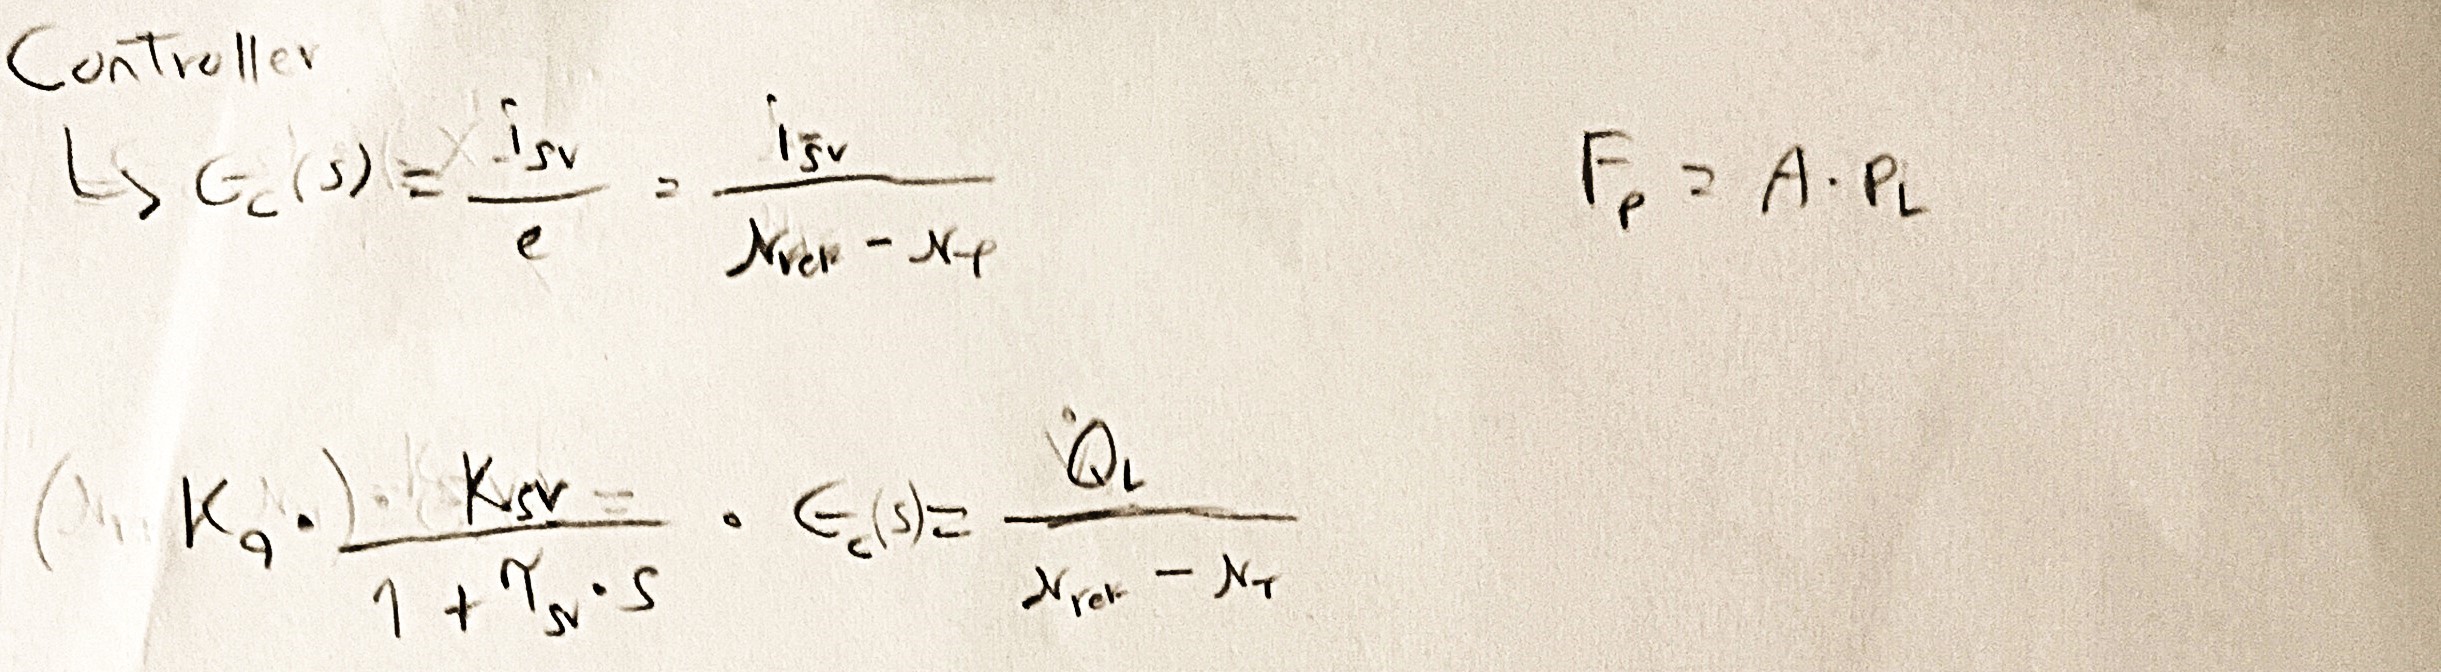 Controller
↳ G_c(s) = i_sv / e = i_sv / (x_ref - x_p)
F_p = A · P_L
K_q · K_sv / (1 + τ_sv · s) · G_c(s) = Q_L / (x_ref - x_T)